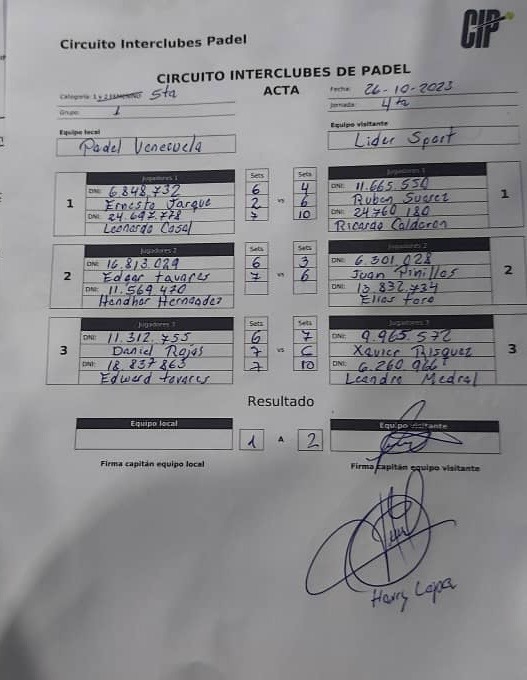 CIP
Circuito Interclubes Padel
CIRCUITO INTERCLUBES DE PADEL
ACTA
Categoría: 5ta
Fecha: 26-10-2023
Grupo: 1
Jornada: 4ta
Equipo local
Equipo visitante
Padel Venezuela
Lider Sport
Jugadores 1 Sets Sets Jugadores 1
1 DNI: 6.848.732 6 4 DNI: 11.665.550 1
Ernesto Jarque 2 vs 6 Ruben Suarez
DNI: 24.697.778 7 10 DNI: 24.760.180
Leonardo Casal Ricardo Calderon
Jugadores 2 Sets Sets Jugadores 2
2 DNI: 16.813.029 6 3 DNI: 6.301.028 2
Edgar Tavares 7 vs 6 Juan Pinillos
DNI: 11.569.470 DNI: 13.832.734
Hendher Hernandez Elias Toro
Jugadores 3 Sets Sets Jugadores 3
3 DNI: 11.312.755 6 7 DNI: 9.965.572 3
Daniel Rojas 7 vs 6 Xavier Risquez
DNI: 18.837.863 7 10 DNI: 6.260.966
Edward Tavares Leandro Medral
Resultado
Equipo local Equipo visitante
1 A 2
Firma capitán equipo local
Firma capitán equipo visitante
Harry Lopez